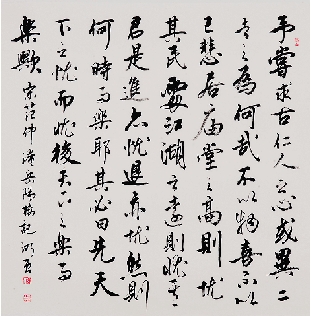 予嘗求古仁人之心或異二
者之為何哉不以物喜不以
己悲居庙堂之高則忧
其民處江湖之遠則忧其
君是進亦忧退亦忧然則
何時而樂耶其必曰先天
下之忧而忧後天下之樂而
樂歟 宋范仲淹岳陽樓記